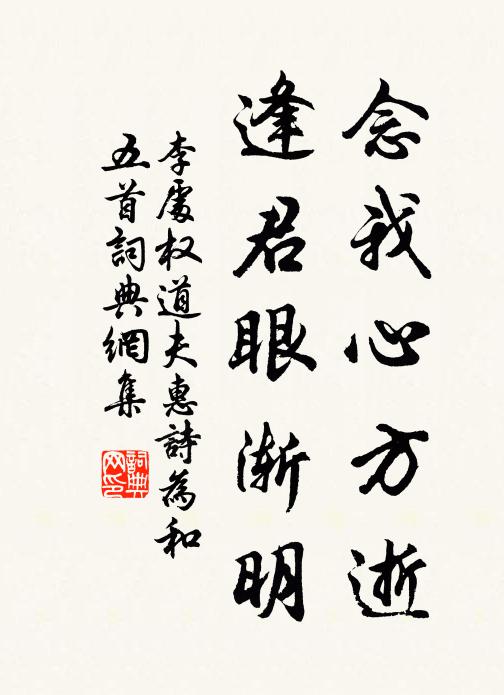 念我心方逝
逢君眼渐明
李處权道夫惠詩為和
五首詞典網集
詞典网印